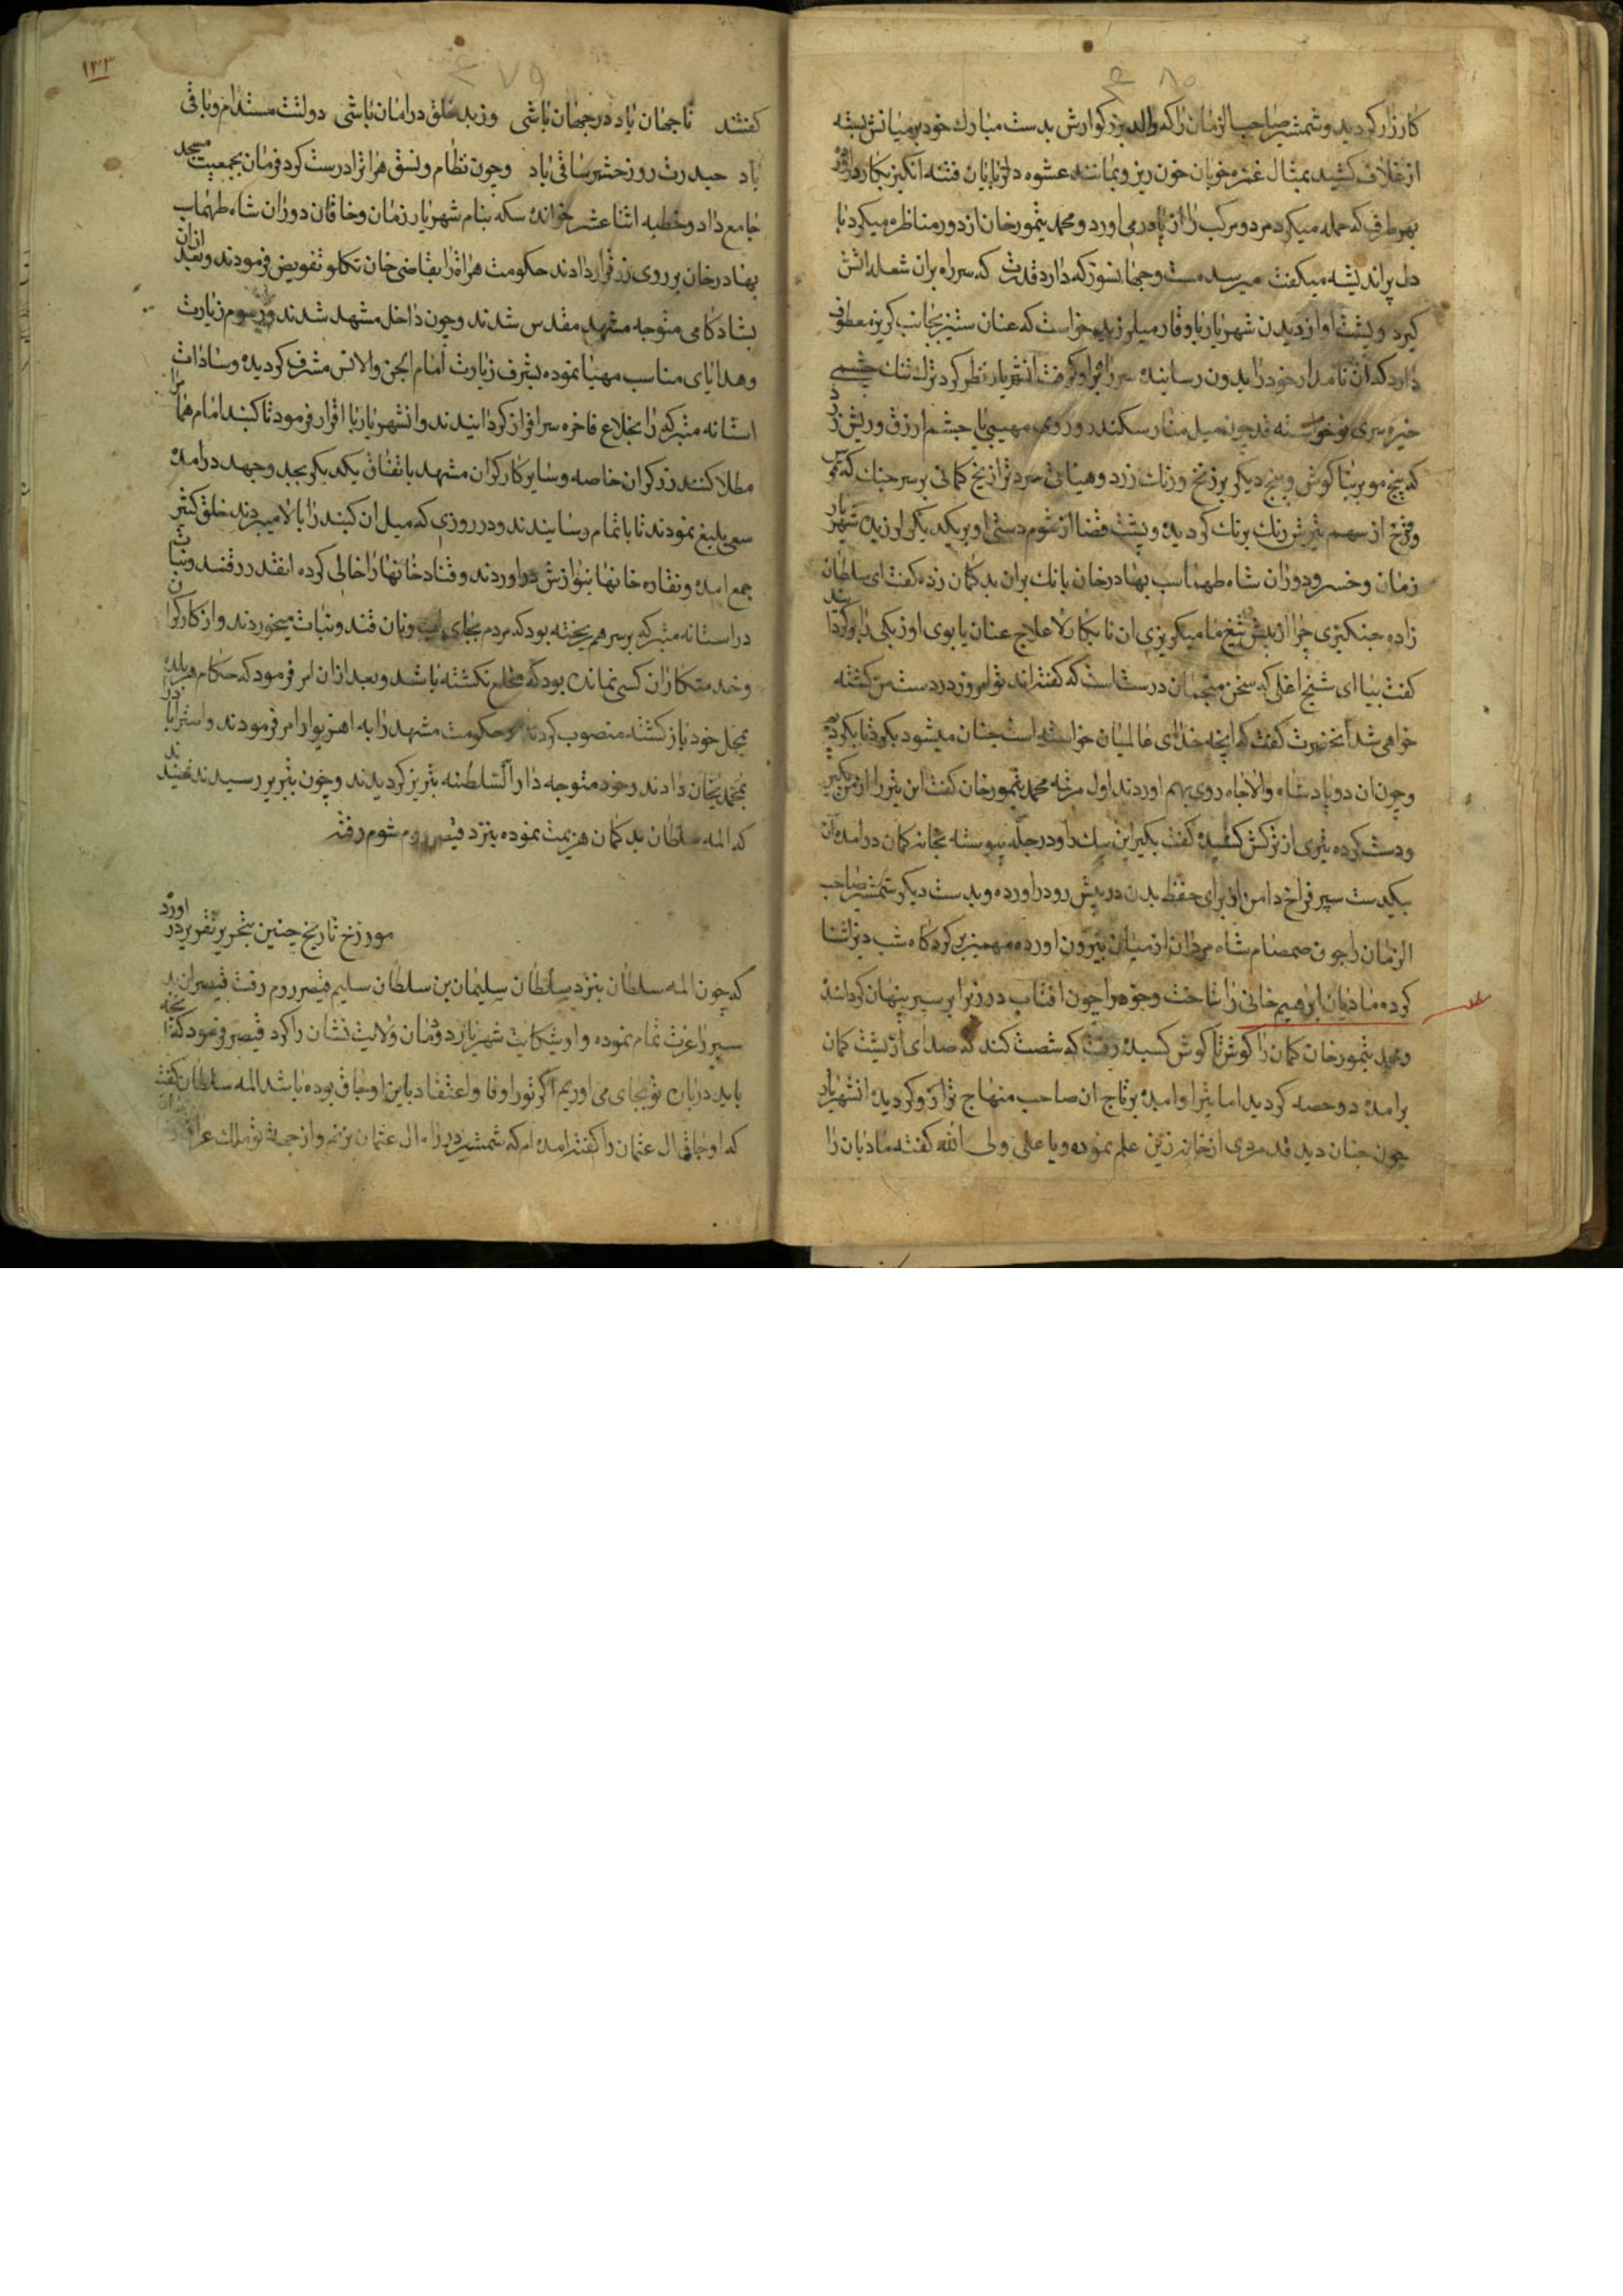 کارزار کردید و شمشیر صاحب الزمان را که والد بزرکوارش بدست مبارک خود بر میانش بسته
از غلاف کشید بمثال غمزه خوبان خون ریز و بمانند عشوه دلربایان فتنه انکیز بکار درآورد
بهر طرف که حمله میکرد مرد و مرکب را از پا درمی اورد و محمد تیمور خان از دور مناظره میکرد با
دل پر اندیشه میکفت میرسد مست و جهانسوز که دارد قدرت که سر راه بران شعله اتش
کیرد و پشت او از دیدن شهریار با وقار میلرزید میخواست که عنان ستیز بجانب کریز معطوف
دارد که ان نامدار خود را بدون رسانیده سر راه بر او کرفت انشهریار نظر کرد ترک تنک چشمی
خیره سری نوخواسته قد چون میل منار سکندر و روی مهیبی با چشم ازرق و ریش زرد
که پنج مو بر بناکوش و پنج دیکر بر زنخ و رنک زرد و هیاتی کمانی بر سر چنک که
و چرخ از سهم تیرش رنک برنک کردیده و پشت قضا از شوم دستی او بر یکدیکر لرزیده شهریار
زمان و خسرو دوران شاه طهماسب بهادر خان بانک بران بدکمان زده کفت ای سلطان
زاده چنکیزی چرا از پیش تیغ ما میکریزی ان نابکار لاعلاج عنان یابوی اوزبکی را وا کردانید
کفت بیا ای شیخ اغلی که سخن منجمان درست است که کفته اند تو امروز در دست من کشته
خواهی شد انحضرت کفت که انچه خدای عالمیان خواسته است چنان میشود بکرد تا بکردیم
و چون ان دو پادشاه والاجاه روی بهم اوردند اول مرتبه محمد تیمور خان کفت این تیر را از من بکیر
و دست کرده تیری از ترکش کشیده کفت بکیر این بیلک را و در چله پیوسته بخانه کمان درامده ان
بیکدست سپر فراخ دامن از برای حفظ بدن در پیش رو دراورده و بدست دیکر شمشیر صاحب
الزمان را چون صمصام شاه مردان از میان بیرون اورده مهمیز بر کردکاه شب دیز اشنا
کرده مادیان ابرهیم خانی را تاخت و جوهر را چون افتاب در زیر ابر سپر پنهان کردانیده
و محمد تیمور خان کمان را کوش تا کوش کشیده رفت که شصت کند که صدای از پشت کمان
برامده دو حصه کردید اما تیر او امده بر تاج ان صاحب منهاج ترازو کردیده انشهریار
چون چنان دید قد مردی از خانه زین علم نموده و یا علی ولی الله کفته مادیان را
۱۳۳
کفتند تا جهان باد در جهان باشی وز بد خلق در امان باشی دولتت مستدام و باقی
باد حیدرت روز حشر ساقی باد و چون نظام و نسق هراترا درست کرد فرمان بجمعیت مسجد
جامع داد و خطبه اثنا عشر خوانده سکه بنام شهریار زمان و خاقان دوران شاه طهماسب
بهادر خان بر روی زر قرار دادند حکومت هراة را بقاضی خان تکلو تفویض فرمودند و بعد ازان
بشادکامی متوجه مشهد مقدس شدند و چون داخل مشهد شدند و رسوم زیارت
و هدایای مناسب مهیا نموده بشرف زیارت امام الجن والانس مشرف کردیده و سادات
استانه متبرکه را بخلاع فاخره سرافراز کردانیدند و انشهریار با اقرار فرمود تا کنبد امام همام را
مطلا کنند زرکران خاصه و سایر کارکران مشهد باتفاق یکدیکر بجد و جهد درامده
سعی بلیغ نمودند تا باتمام رسانیدند و در روزی که میل ان کنبد را بالا میبردند خلق کثیر
جمع امده و نقاره خانها بنوازش دراوردند و قناد خانها را خالی کرده انقدر قند و نبات
در استانه متبرکه بر سر هم ریخته بود که مردم بجای اب و نان قند و نبات میخوردند و از کارکران
و خدمتکاران کسی نمانده بود که مخلع نکشته باشد و بعد ازان امر فرمود که حکام هر بلده
بمحل خود باز کشته منصوب کردند و حکومت مشهد را به اهنرپوار امر فرمودند و استراباد را
بمحمدیخان دادند و خود متوجه دار السلطنه تبریز کردیدند و چون بتبریز رسیدند شنیدند
که المه سلطان بدکمان هزیمت نموده بنزد قیصر روم شوم رفته
مورخ تاریخ چنین بتحریر تقریر دراورد
که چون المه سلطان بنزد سلطان سلیمان بن سلطان سلیم قیصر روم رفت قیصر
عزت تمام نموده و او شکایت شهریار دومان ولایت نشان را کرد قیصر فرمود که انچه
باید در بان تو بجای می اوریم اکر تو را وفا و اعتقاد باین اوجاق بوده باشد المه سلطان کفت
که اوجاق ال عثمان را کفته امده ام که شمشیر در راه ال عثمان بزنم و از جهة تو ملک عراق